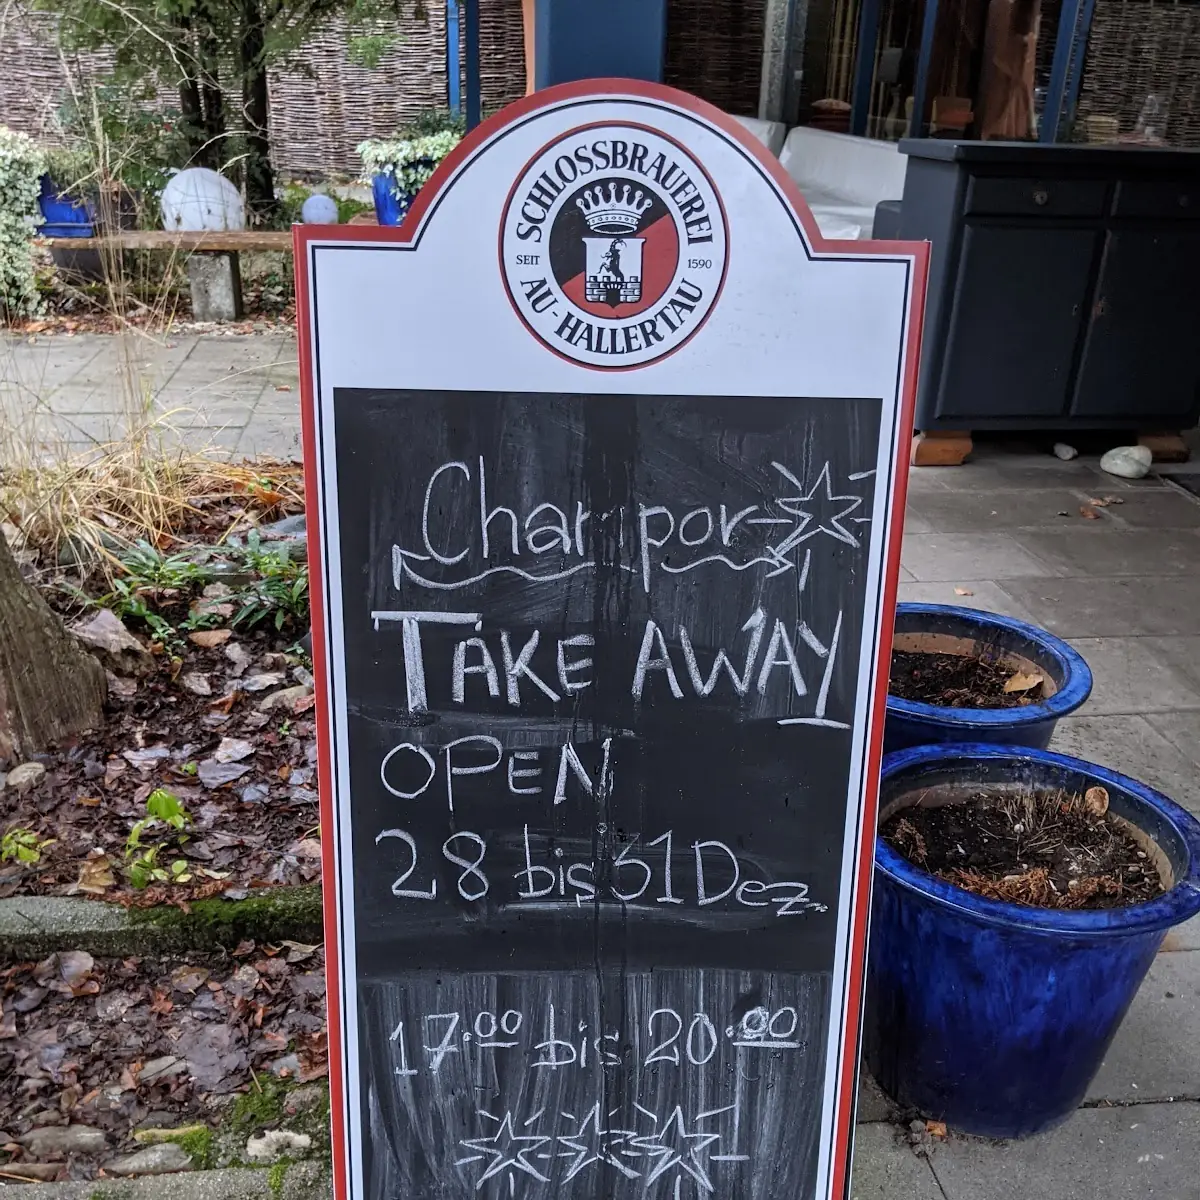 SCHLOSSBRAUEREI
SEIT 1590
AU-HALLERTAU
Champor
TAKE AWAY
OPEN
28 bis 31 Dez.
17.00 bis 20.00